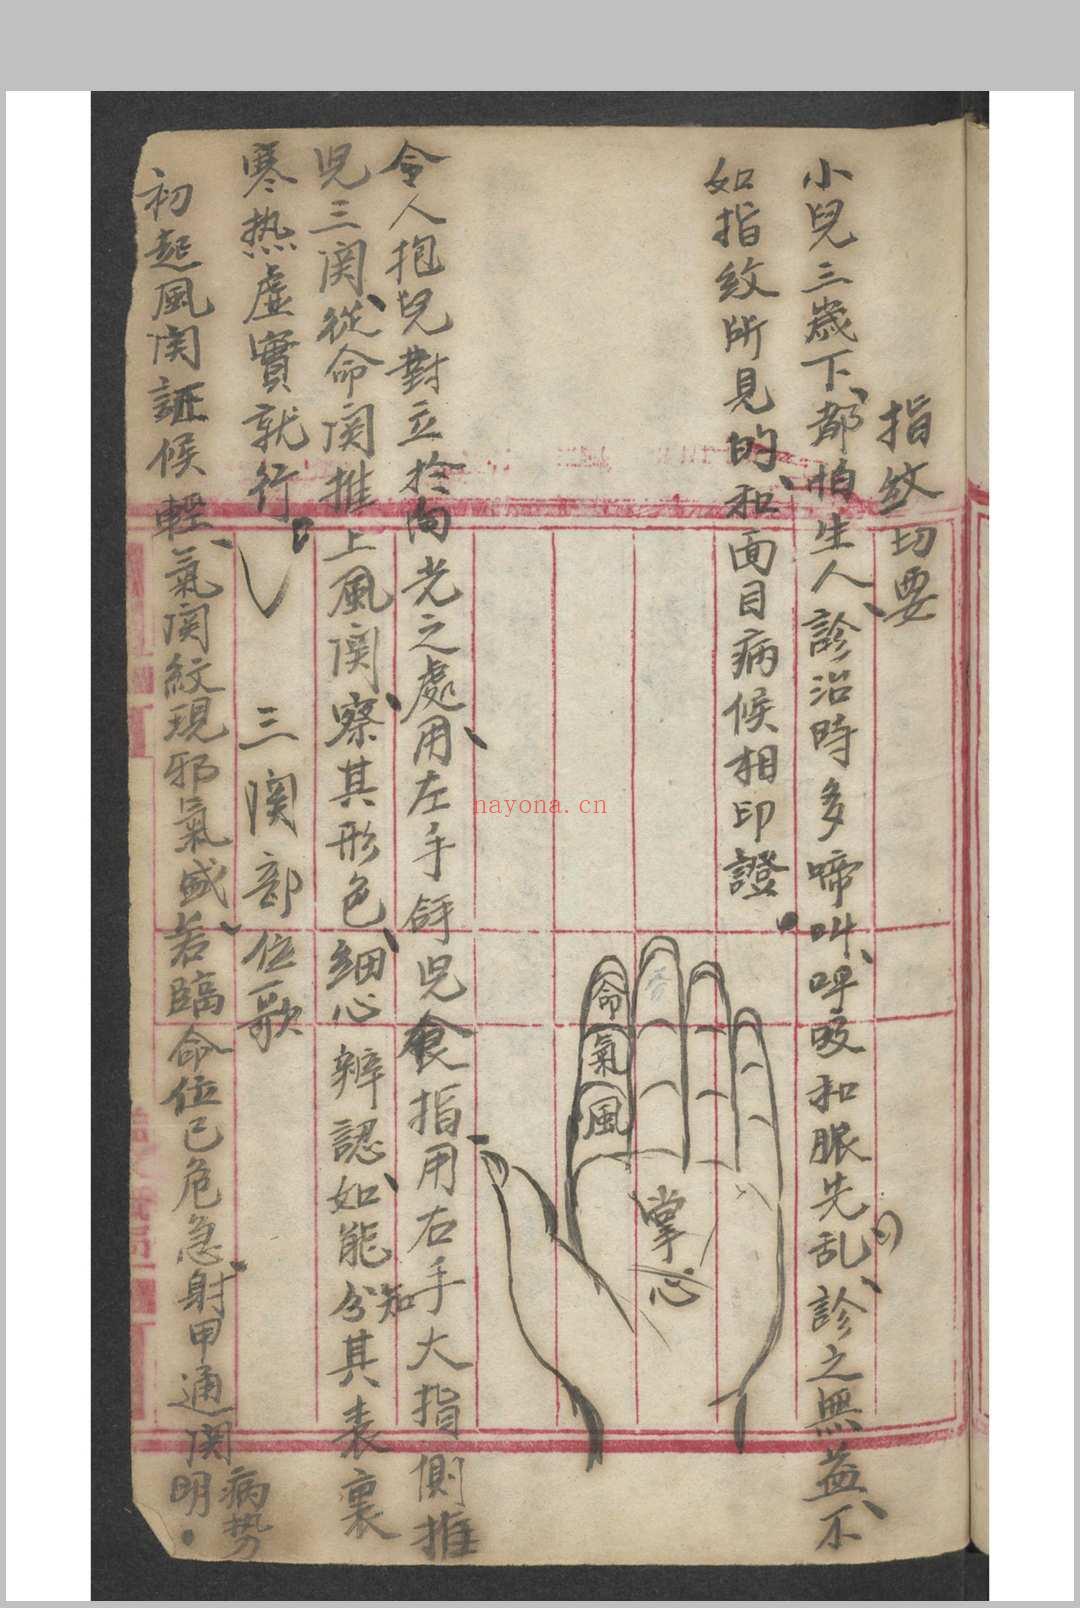 指紋切要
小兒三歲下、都怕生人、診治時多啼叫、呼吸和脈先乱、診之無益、不
如指紋所見的、和面目病候相印證。
命
氣
風
掌心
令人抱兒對立於向光之處、用左手㧱兒食指、用右手大指側推
兒三関、從命関推上風関、察其形色、細心辨認、如能分知其表裏
寒热虛實就行。
三関部位歌
初起風関証候輕、氣関紋現邪氣盛、若臨命位已危急、射甲通関病势明。
nayona.cn